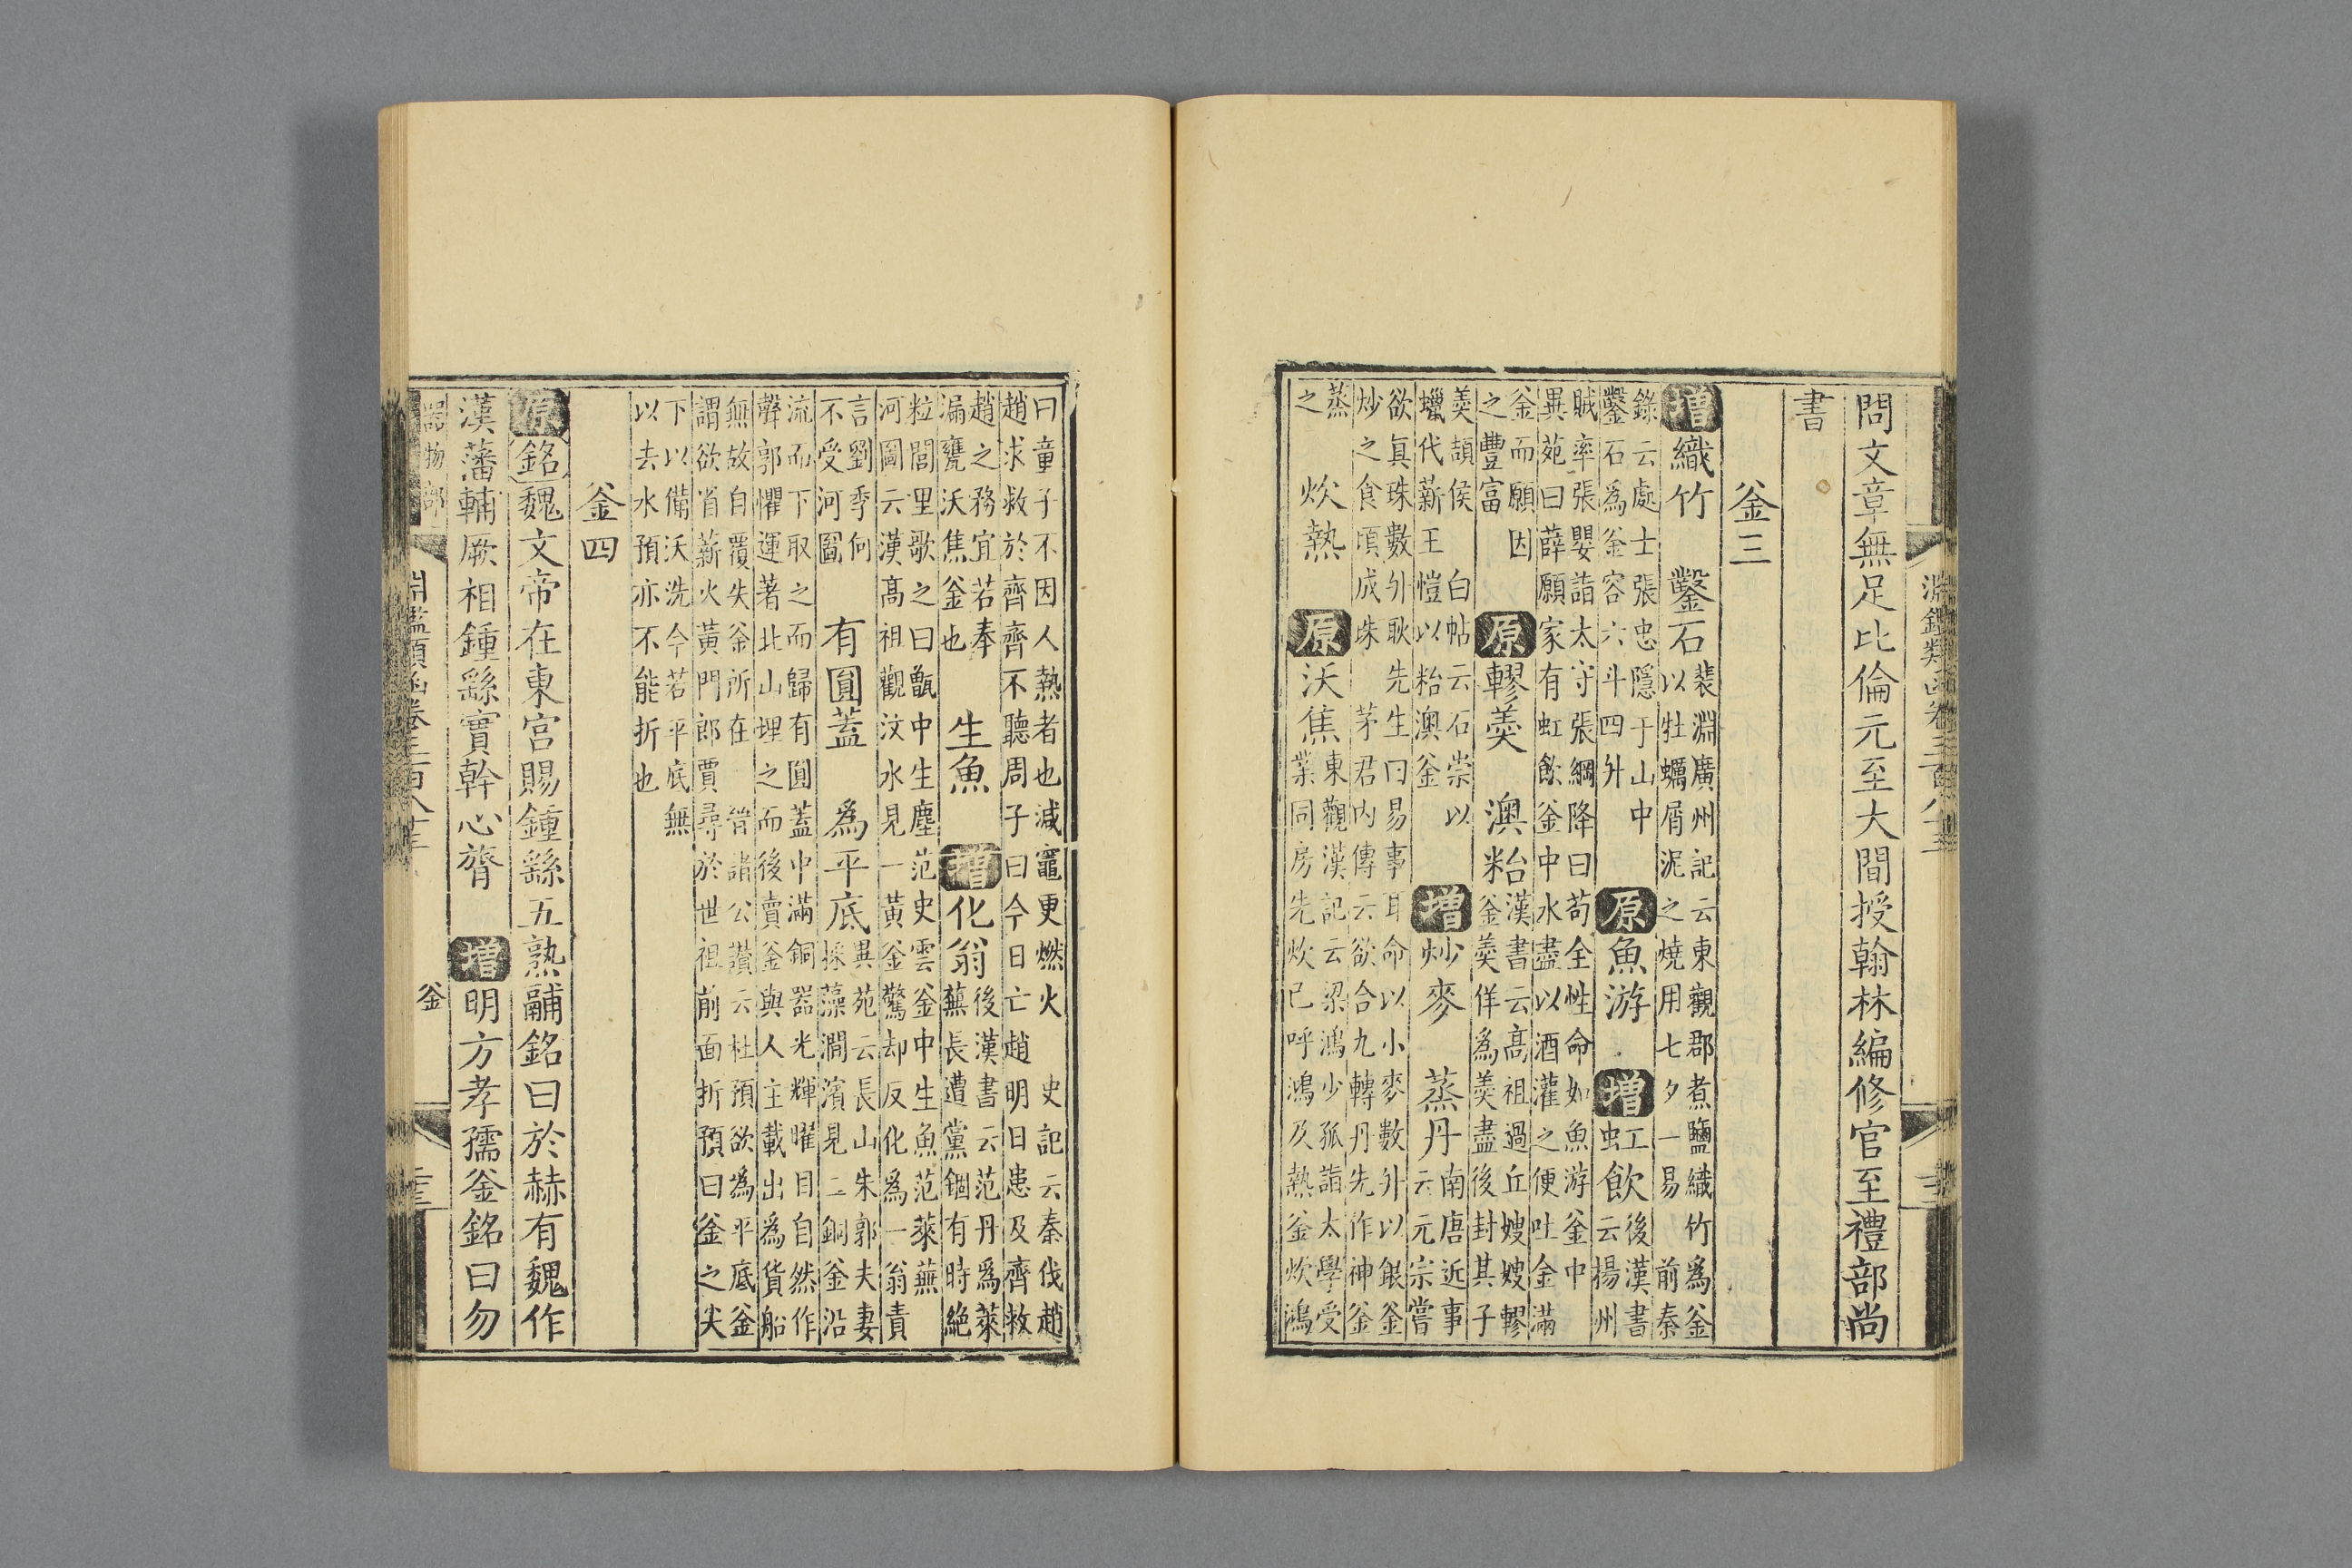 問文章無足比倫元至大間授翰林編修官至禮部尚
書
釜三
增織竹 鑿石裴淵廣州記云東觀郡煮鹽織竹為釜以牡蠣屑泥之燒用七夕一易 前秦
錄云處士張忠隱于山中鑿石為釜容六斗四升 原魚游 增虹飲後漢書云揚州
賊率張嬰詣太守張綱降曰苟全性命如魚游釜中 異苑曰薛願家有虹飲釜中水盡以酒灌之便吐金滿
釜而願因之豐富 原轑羹 澳粭漢書云高祖過丘嫂嫂轑釜羹佯為羹盡後封其子
羹頡侯 白帖云石崇以蠟代薪王愷以粭澳釜 增炒麥 蒸丹南唐近事云元宗嘗
欲真珠數升耿先生曰易事耳命以小麥數升以銀釜炒之食頃成珠 茅君內傳云欲合九轉丹先作神釜
蒸之 炊熱 原沃焦東觀漢記云梁鴻少孤詣太學受業同房先炊已呼鴻及熱釜炊鴻
曰童子不因人熱者也減竈更燃火 史記云秦伐趙趙求救於齊齊不聽周子曰今日亡趙明日患及齊救
趙之務宜若奉漏甕沃焦釜也 生魚 增化翁後漢書云范丹為萊蕪長遭黨錮有時絕
粒閭里歌之曰甑中生塵范史雲釜中生魚范萊蕪 河圖云漢高祖觀汶水見一黃釜驚却反化為一翁責
言劉季何不受河圖 有圓蓋 為平底異苑云長山朱郭夫妻採藻澗濱見二銅釜沿
流而下取之而歸有圓蓋中滿銅器光輝曜目自然作聲郭懼運著北山埋之而後賣釜與人主載出為貨船
無故自覆失釜所在 晉諸公讚云杜預欲為平底釜謂欲省薪火黃門郎賈尋於世祖前面折預曰釜之尖
下以備沃洗今若平底無以去水預亦不能折也
釜四
原銘魏文帝在東宮賜鍾繇五熟鬴銘曰於赫有魏作
漢藩輔厥相鍾繇實幹心膂 增明方孝孺釜銘曰勿
器物部 淵鑑類函卷三百八十三 釜